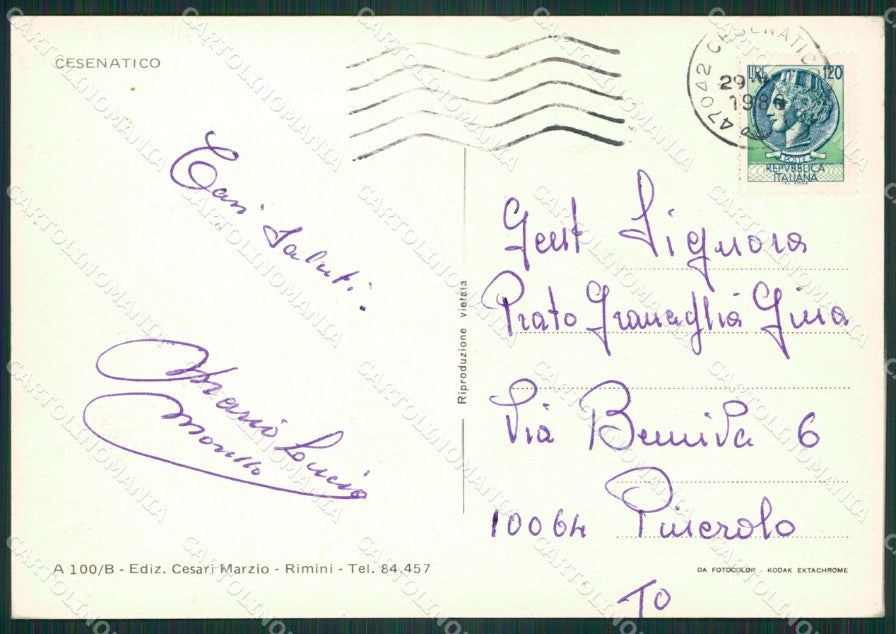 CESENATICO
Cari Saluti.
Mario Lucia
Morello
A 100/B - Ediz. Cesari Marzio - Rimini - Tel. 84.457
Riproduzione vietata
47042 CESENATICO
29
198
LIRE 120
POSTE
REPVBBLICA
ITALIANA
Gent Signora
Prato Gramaglia Gina
Via Bemiva 6
10064 Pinerolo
To
DA FOTOCOLOR - KODAK EKTACHROME
CARTOLINOMANIA